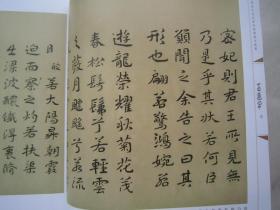 宓妃則君王所見無
乃是乎其狀若何臣
願聞之余告之曰其
形也翩若驚鴻婉若
遊龍榮耀秋菊華茂
春松髣髴兮若輕雲
之蔽月飄飄兮若流
若太陽昇朝霞
迫而察之灼若扶渠
波穠纖得衷脩